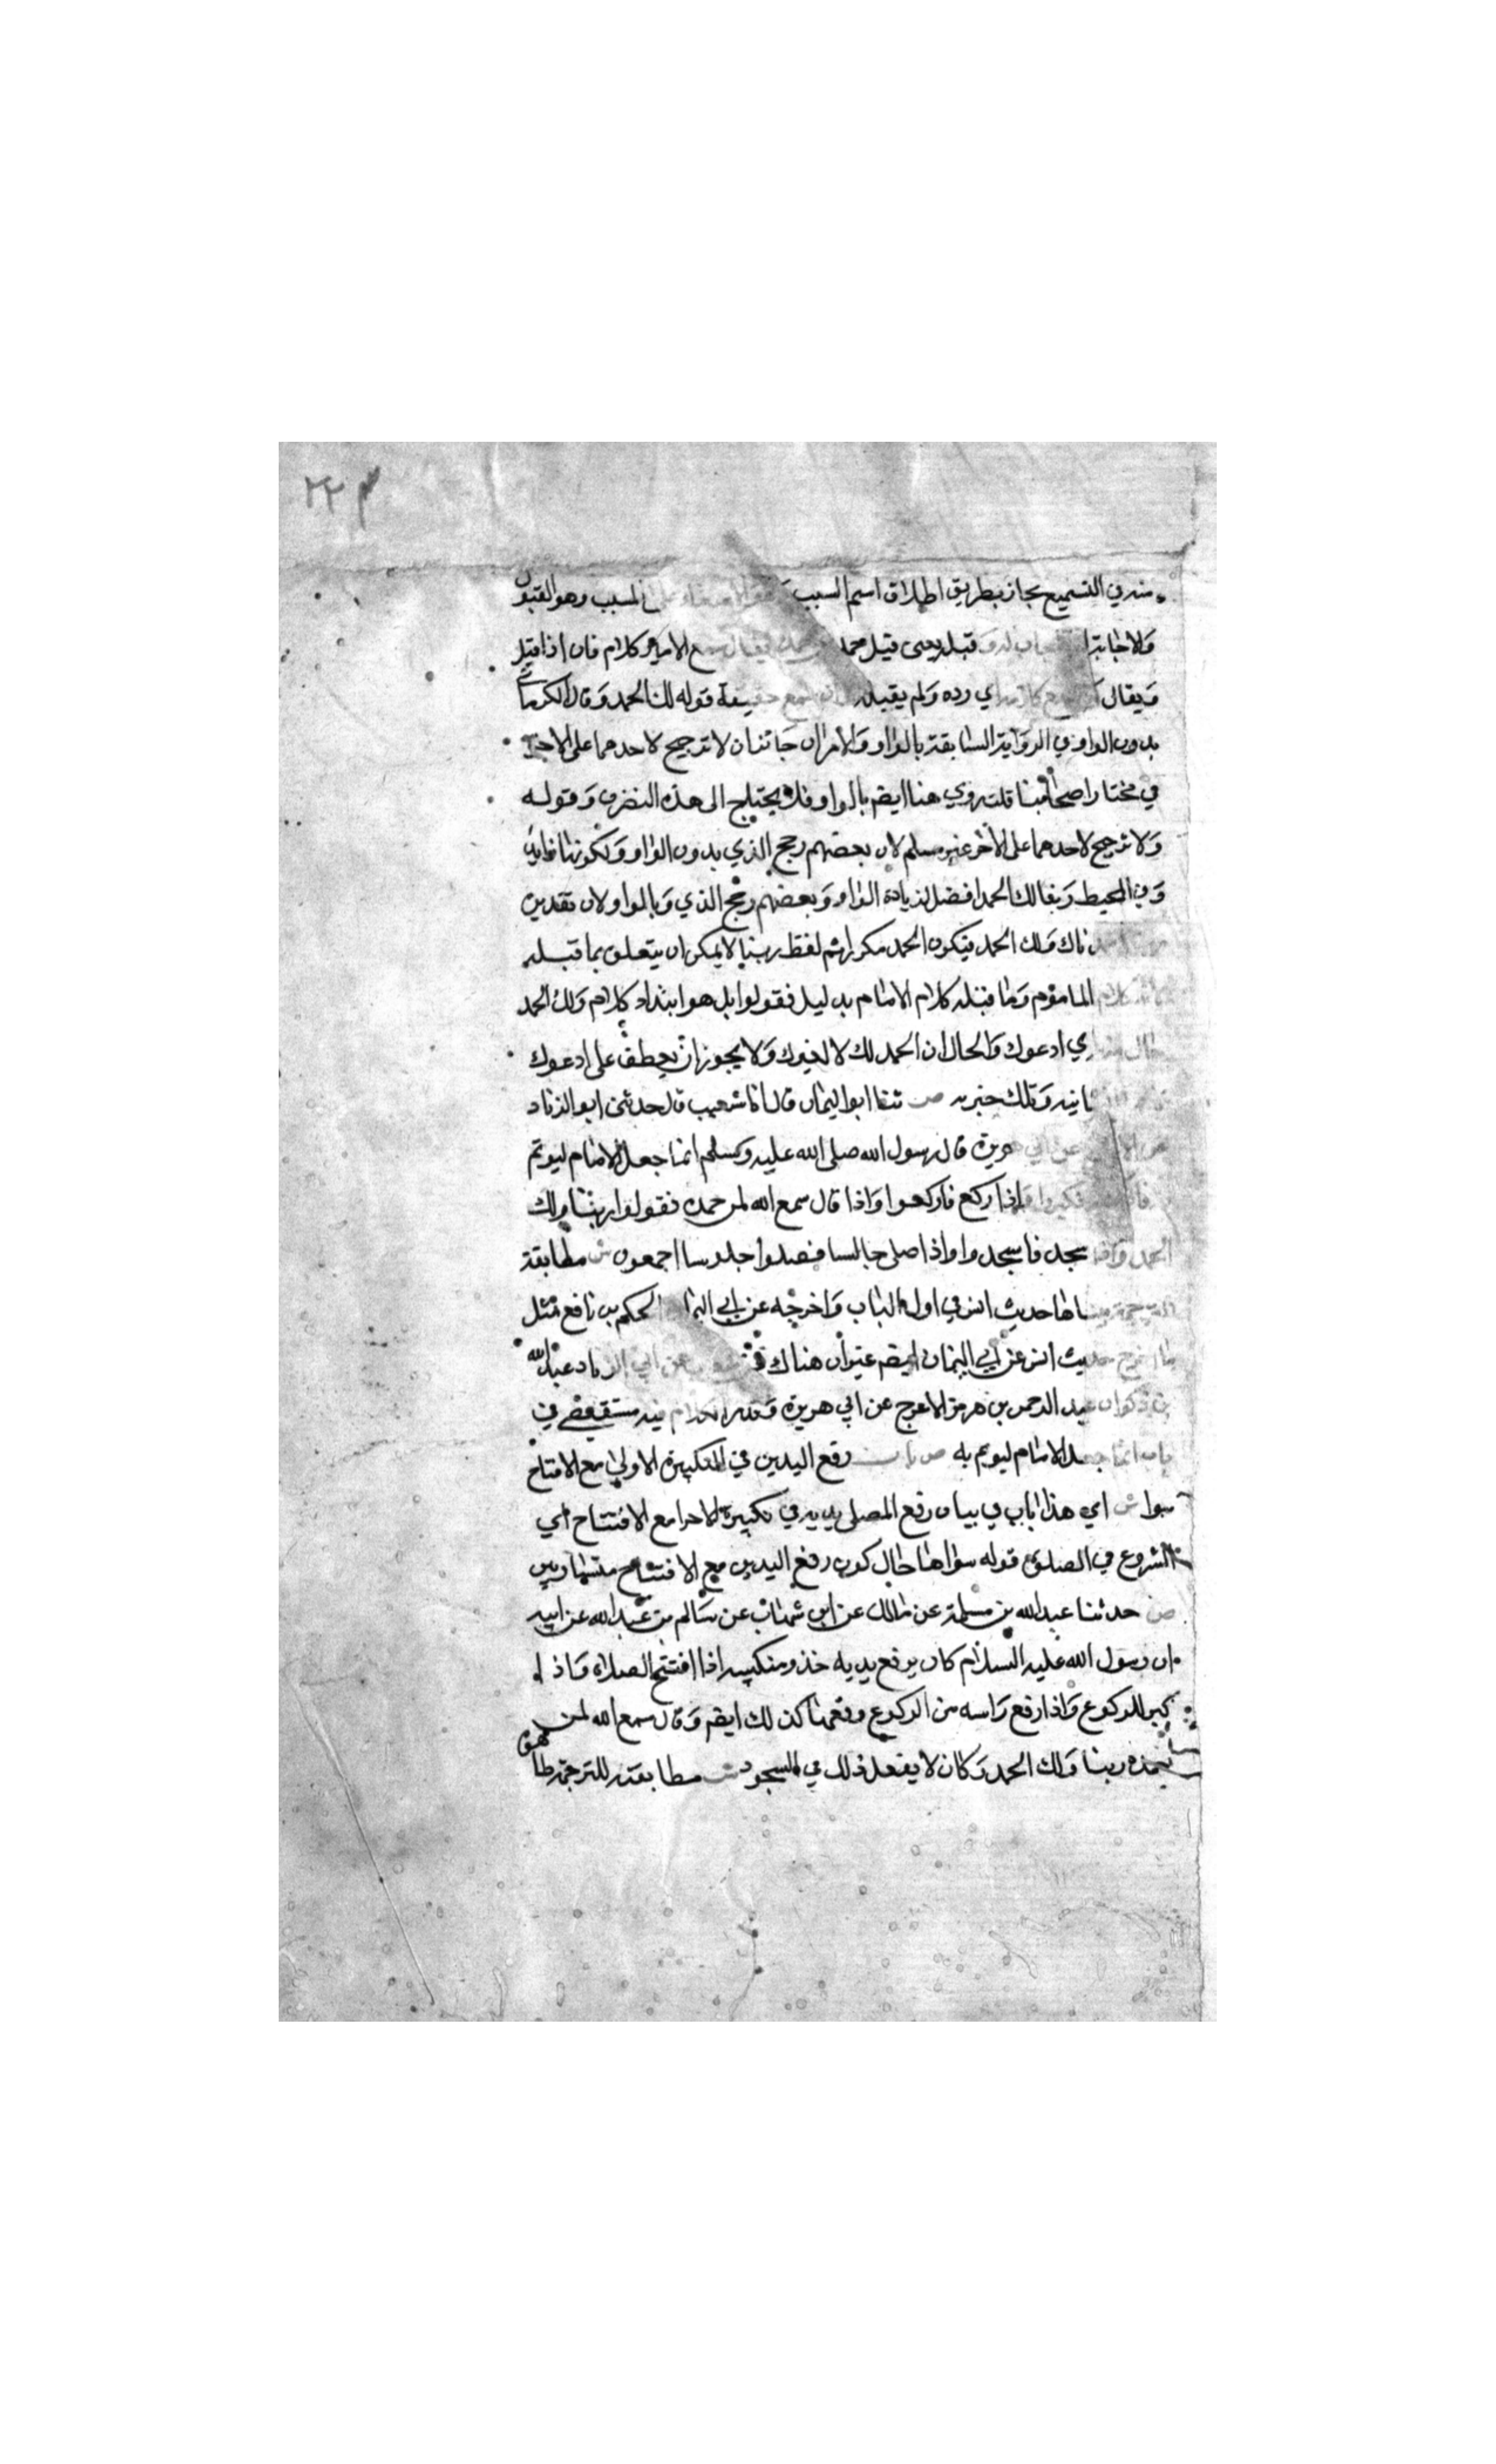 ٢٢٣
منه في التسميع مجاز بطريق اطلاق اسم السبب المسبب وهو القبول
والاجابة قبله يعني قيل حمد الامير كلام فان اذا قيل
ويقال اي رده ولم يقبله حقيقة قوله لك الحمد وقال الكرماني
بدون الواو في الرواية السابقة بالواو والامران جائزان لا ترجيح لاحدهما على الاخر
في مختار اصحابنا قلت روي هنا ايضم بالواو فلا يحتاج الى هذه النضرف وقوله
ولا ترجيح لاحدهما على الاخر غير مسلم لان بعضهم رجح الذي بدون الواو ولكونها زايدة
وفي المحيط ربنا لك الحمد افضل لزيادة الواو وبعضهم رجح الذي وبالواو لان تقديره
ناك ولك الحمد فيكون الحمد مكررا ثم لفظ ربنا لا يمكن ان يتعلق بما قبله
كلام الماموم وما قبله كلام الامام بدليل فقولوا بل هو ابتداء كلام ولك الحمد
حال اي ادعوك والحال ان الحمد لك لا لغيرك ولا يجوز ان يعطف على ادعوك
وتلك خبريه ص ثنا ابو اليمان قال انا شعيب قال حدثني ابو الزناد
عن ابي هريرة قال رسول الله صلى الله عليه وسلم انما جعل الامام ليوتم
فكبروا واذا ركع فاركعوا واذا قال سمع الله لمن حمده فقولوا ربنا ولك
الحمد واذا سجد فاسجدوا واذا صلى جالسا فصلوا جلوسا اجمعون ش مطابقة
الترجمة حديث انس في اول الباب واخرجه عن ابي اليمان الحكم بن نافع مثل
ما اخرج حديث انس عن ابي اليمان ايضم غير ان هناك عن ابي الزناد عبد الله
بن ذكوان عبد الرحمن بن هرمز الاعرج عن ابي هريرة وقد الكلام فيه مستقصى في
باب انما جعل الامام ليوتم به ص باب رفع اليدين في التكبيرة الاولى مع الافتتاح
سوا ش اي هذا باب في بيان رفع المصلي يديه في تكبيرة الاحرام مع الافتتاح اي
الشروع في الصلوة قوله سوا هنا حال كون رفع اليدين مع الافتتاح متساويين
ص حدثنا عبد الله بن مسلمة عن مالك عن ابن شهاب عن سالم بن عبد الله عن ابيه
ان رسول الله عليه السلام كان يرفع يديه خذو منكبيه اذا افتتح الصلاة واذا
كبر للركوع واذا رفع راسه من الركوع رفعهما كذلك ايضم وقال سمع الله لمن
حمده ربنا ولك الحمد وكان لا يفعل ذلك في السجود ش مطابقته للترجمة ظاهرة